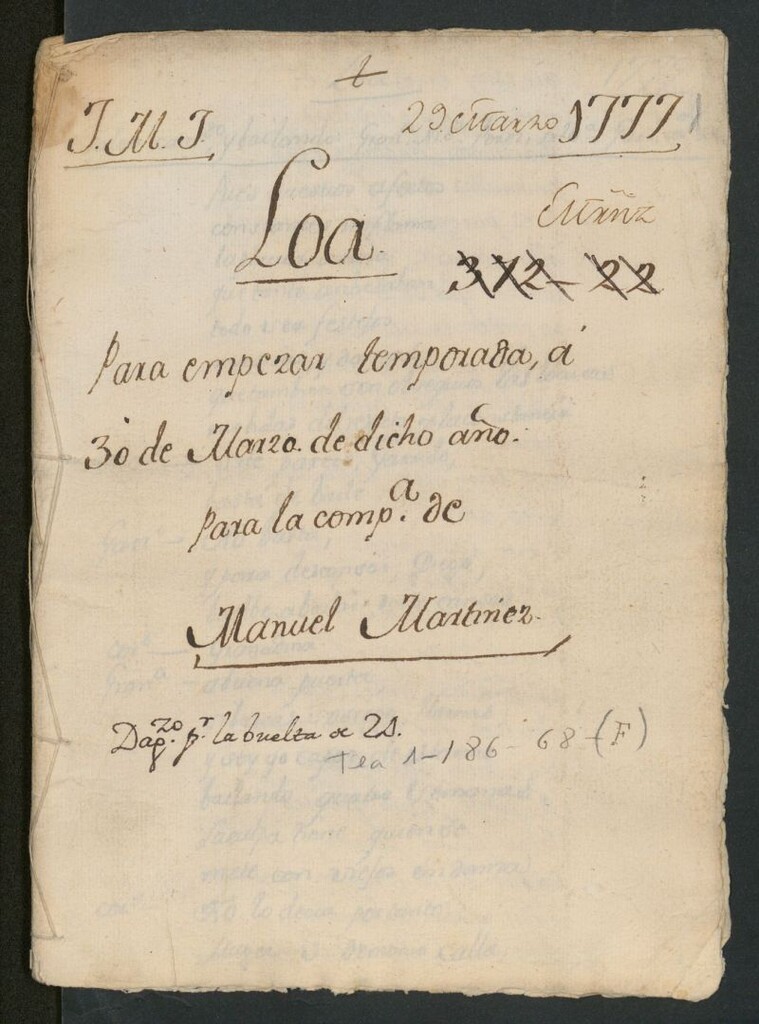 +
J. M. J. 29. Marzo 1777
Loa.
Martnz
312 - 22
Para empezar temporada, á
30 de Marzo. de dicho año.
Para la comp.ª de
Manuel Martinez.
pr. la buelta de
Tea 1-186-68 (F)